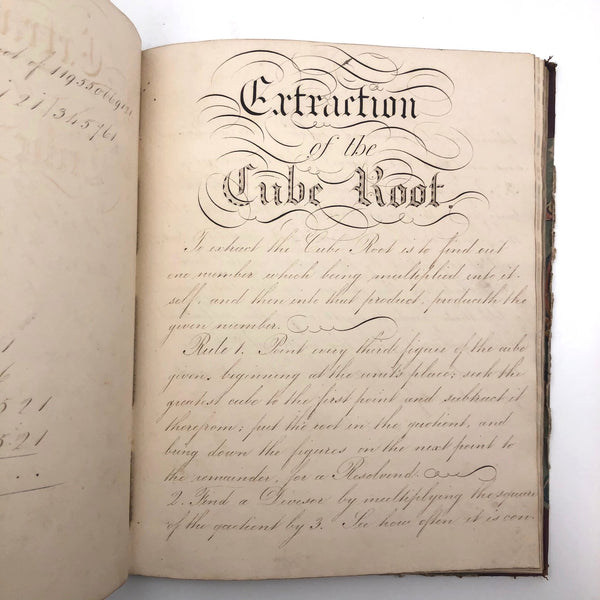 ct of 119550669121
121/345761
1
6
521
521
Extraction
of the
Cube Root.
To extract the Cube Root is to find out
one number which being multiplied into it-
self, and then into that product, produceth the
given number.
Rule 1. Point every third figure of the cube
given, beginning at the unit's place; seek the
greatest cube to the first point and subtract it
therefrom; put the root in the quotient, and
bring down the figures on the next point to
the remainder, for a Resolvend.
2. Find a Divisor by multiplying the square
of the quotient by 3. See how often it is con-